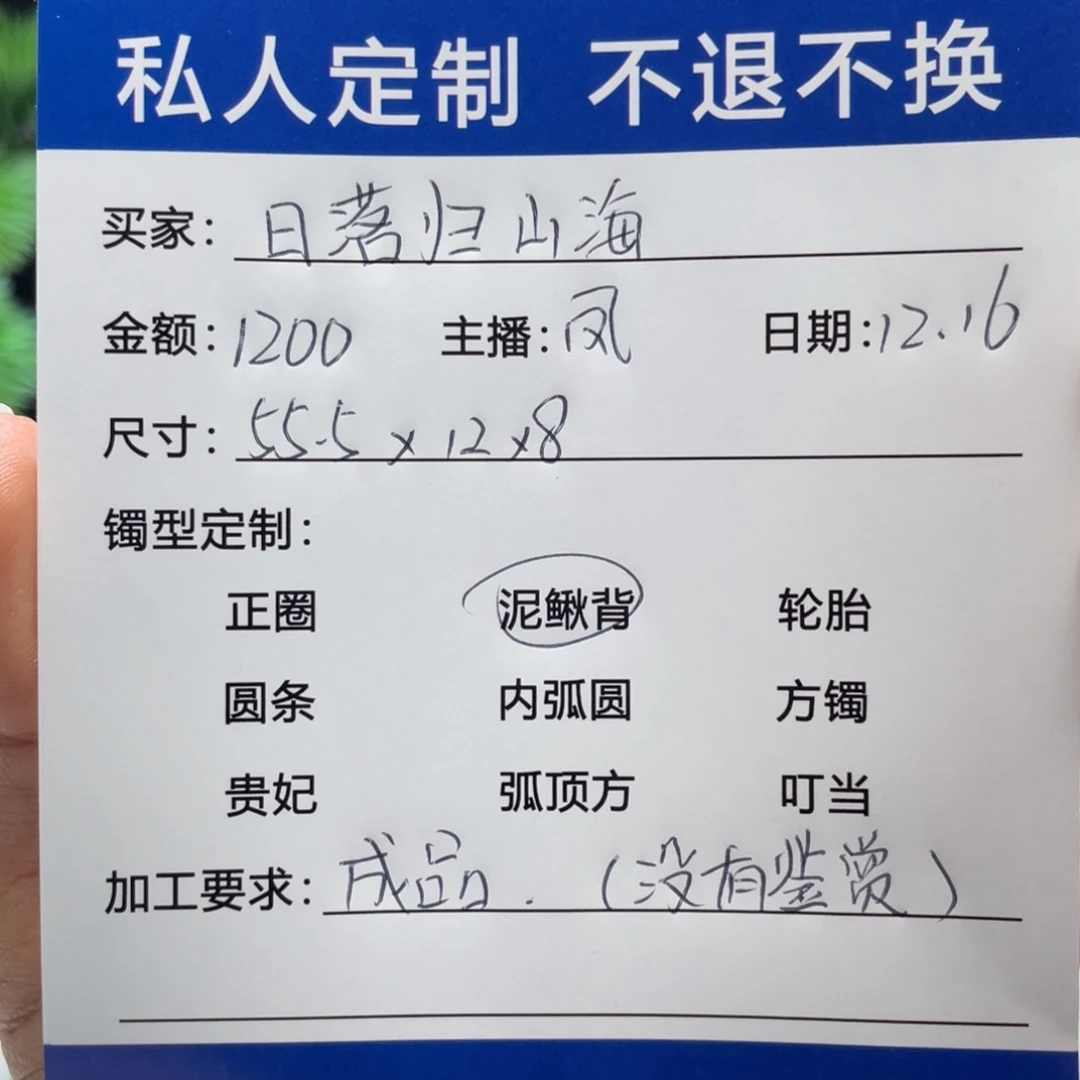 私人定制 不退不换
买家：日落归山海
金额：1200 主播：凤 日期：12.16
尺寸：55.5 x 12 x 8
镯型定制：
正圈 泥鳅背 轮胎
圆条 内弧圆 方镯
贵妃 弧顶方 叮当
加工要求：成品.（没有鉴赏）